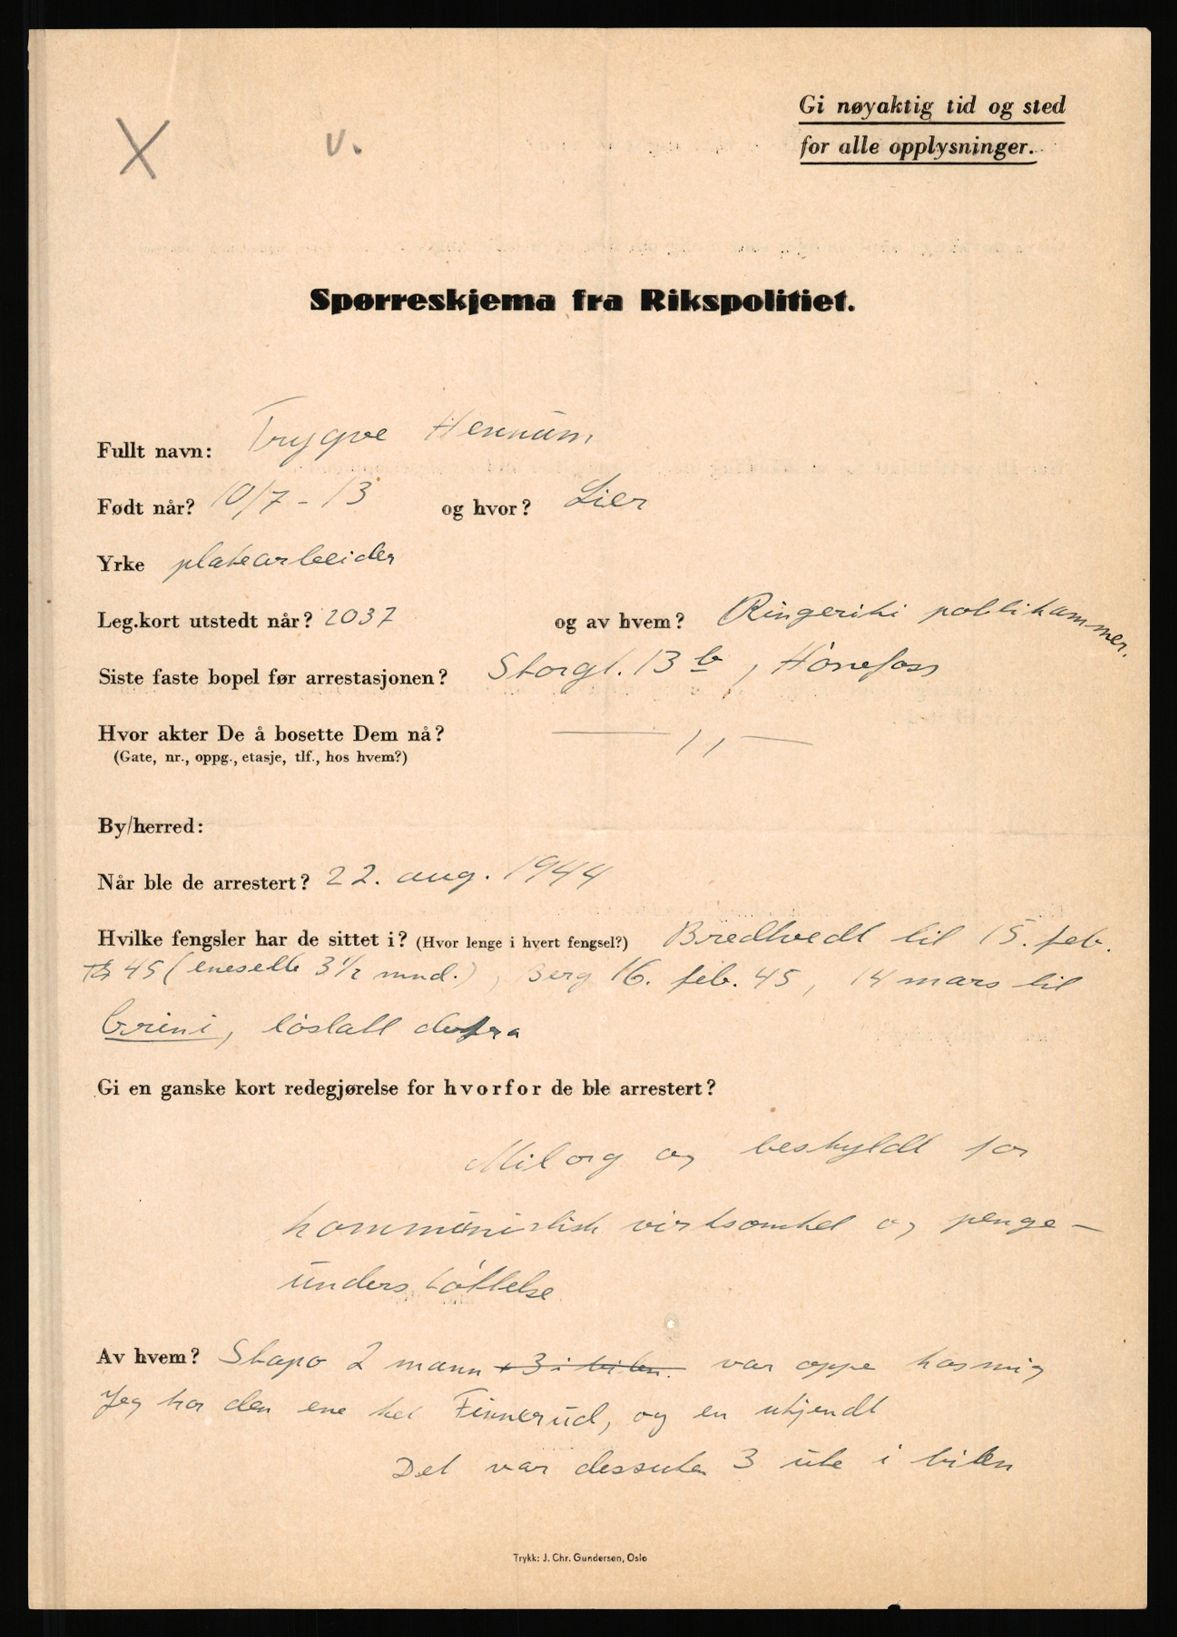 Gi nøyaktig tid og sted
for alle opplysninger.
X v.
Spørreskjema fra Rikspolitiet.
Fullt navn: Trygve Hennum
Født når? 10/7 - 13 og hvor? Lier
Yrke platearbeider
Leg.kort utstedt når? 2037 og av hvem? Ringeriki politikammer.
Siste faste bopel før arrestasjonen? Storgt. 13 b, Hönefoss
Hvor akter De å bosette Dem nå? — 11 —
(Gate, nr., oppg., etasje, tlf., hos hvem?)
By/herred:
Når ble de arrestert? 22. aug. 1944
Hvilke fengsler har de sittet i? (Hvor lenge i hvert fengsel?) Bredtvedt til 15. feb.
45 (enecelle 3 1/2 mnd.), Berg 16. feb. 45, 14 mars til
Grini, löslatt derfra
Gi en ganske kort redegjørelse for hvorfor de ble arrestert?
Milorg og beskyldt for
kommunistisk virksomhet og penge-
understöttelse
Av hvem? Stapo 2 mann + 3 i bilen. var oppe hos mig
Jeg tror den ene het Finnerud, og en ukjendt
Det var dessuten 3 ute i bilen
Trykk: J. Chr. Gundersen, Oslo